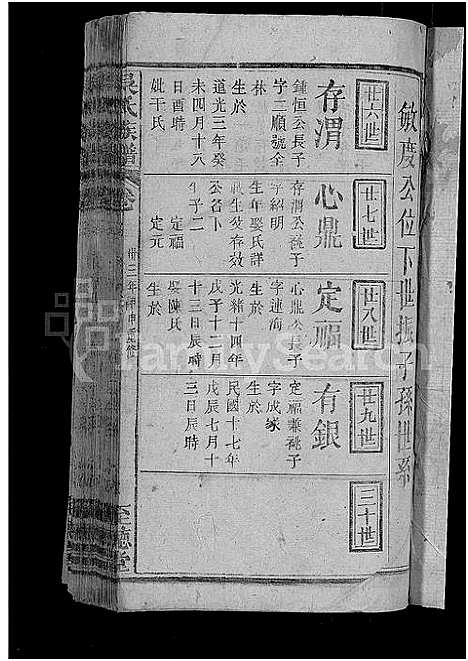 敏慶公位下世振子孫世系
廿六世
存渭
鍾恒公長子
字二順號全
林
生於
道光三年癸
未四月十八
日酉時
妣于氏
廿七世
心鼎
存渭公祧子
字紹明
生年娶氏詳
公谷卜
定福
定元
廿八世
定福
心鼎公長子
字連海
生於
光緒十四年
戊子十二月
十三日辰時
娶陳氏
生於
廿九世
有銀
定福兼祧子
字成家
生於
民國十七年
戊辰七月十
三日辰時
三十世
吳氏族譜
卷
卅三年甲申
至德堂
FamilySearch